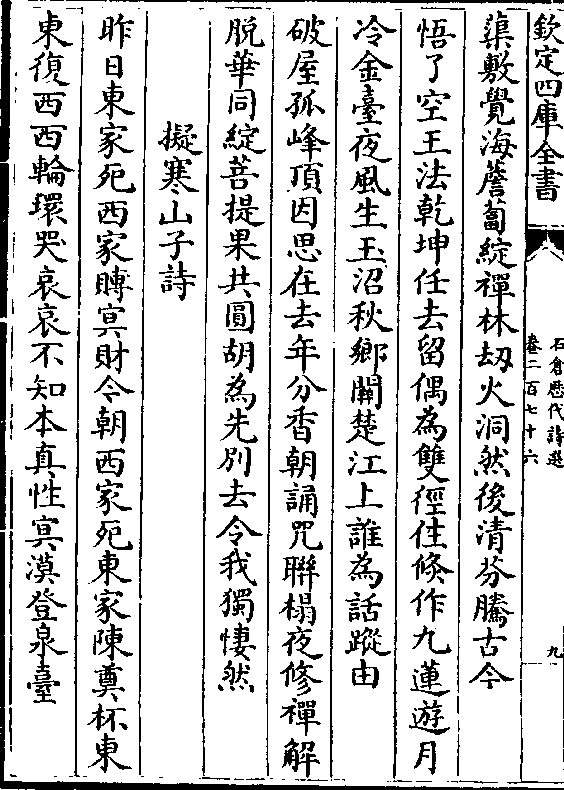 欽定四庫全書
石倉歷代詩選
卷二百七十六
九
蕖敷覺海薝蔔綻禪林劫火洞然後清芬騰古今
悟了空王法乾坤任去留偶為雙徑住倐作九蓮遊月
冷金臺夜風生玉沼秋鄉關楚江上誰為話蹤由
破屋孤峰頂因思在去年分香朝誦咒聯榻夜修禪解
脱華同綻菩提果共圓胡為先別去令我獨悽然
擬寒山子詩
昨日東家死西家賻冥財今朝西家死東家陳奠杯東
東復西西輪環哭哀哀不知本真性冥漠登泉臺